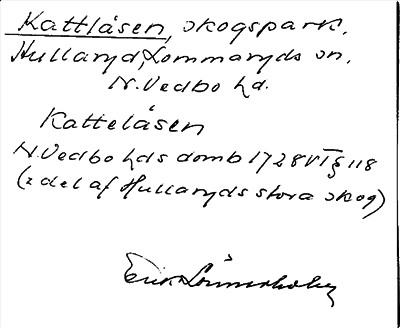 Kattlåsen, skogspark.
Hullaryd, Lommaryds sn.
N. Vedbo hd.
Kattelåsen
N. Vedbo hds domb 1728 VI § 118
(: del af Hullaryds stora skog)
Erik